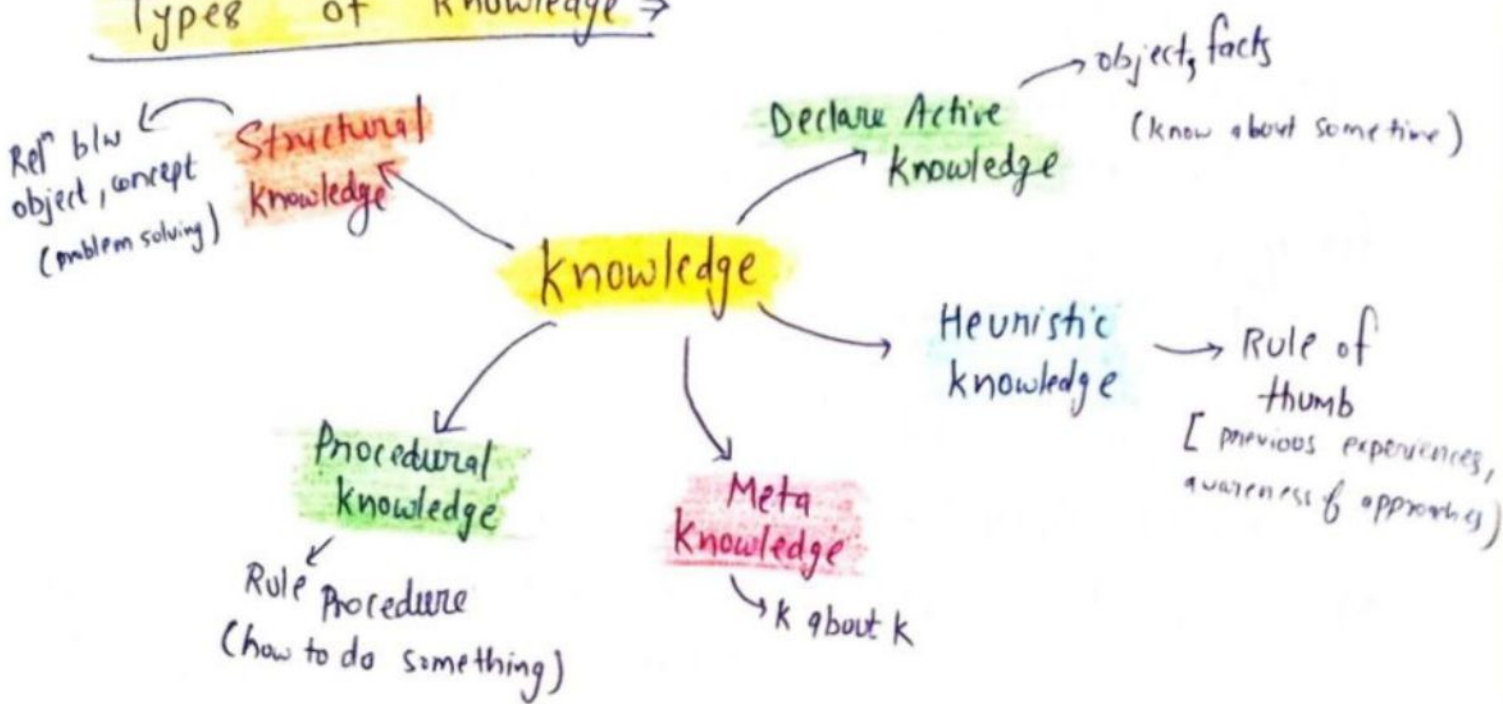 Types of Knowledge →
Structural
Knowledge
Relⁿ b/w
object, concept
(problem solving)
Declare Active
knowledge
object, facts
(know about some time)
knowledge
Heuristic
knowledge
Rule of
thumb
[ previous experiences,
awareness of approaches)
Procedural
knowledge
Rule Procedure
(how to do something)
Meta
Knowledge
K about K